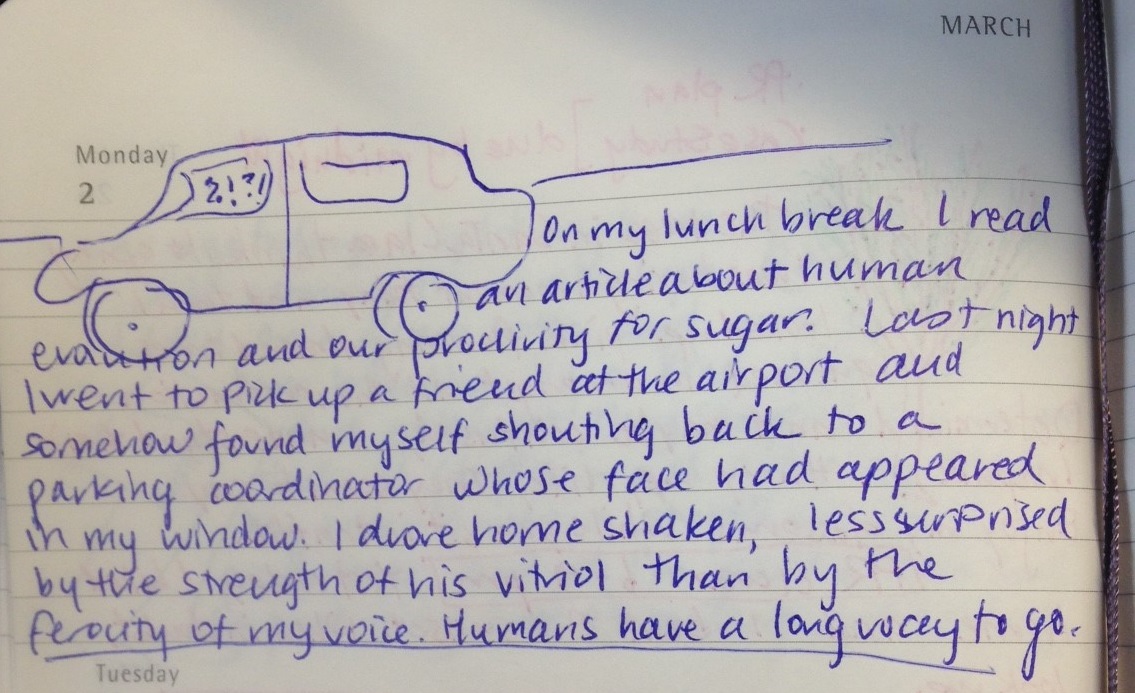 MARCH
Monday
2
?!?!
On my lunch break I read
an article about human
evolution and our proclivity for sugar. Last night
I went to pick up a friend at the airport and
somehow found myself shouting back to a
parking coordinator whose face had appeared
in my window. I drove home shaken, less surprised
by the strength of his vitriol than by the
ferocity of my voice. Humans have a long way to go.
Tuesday